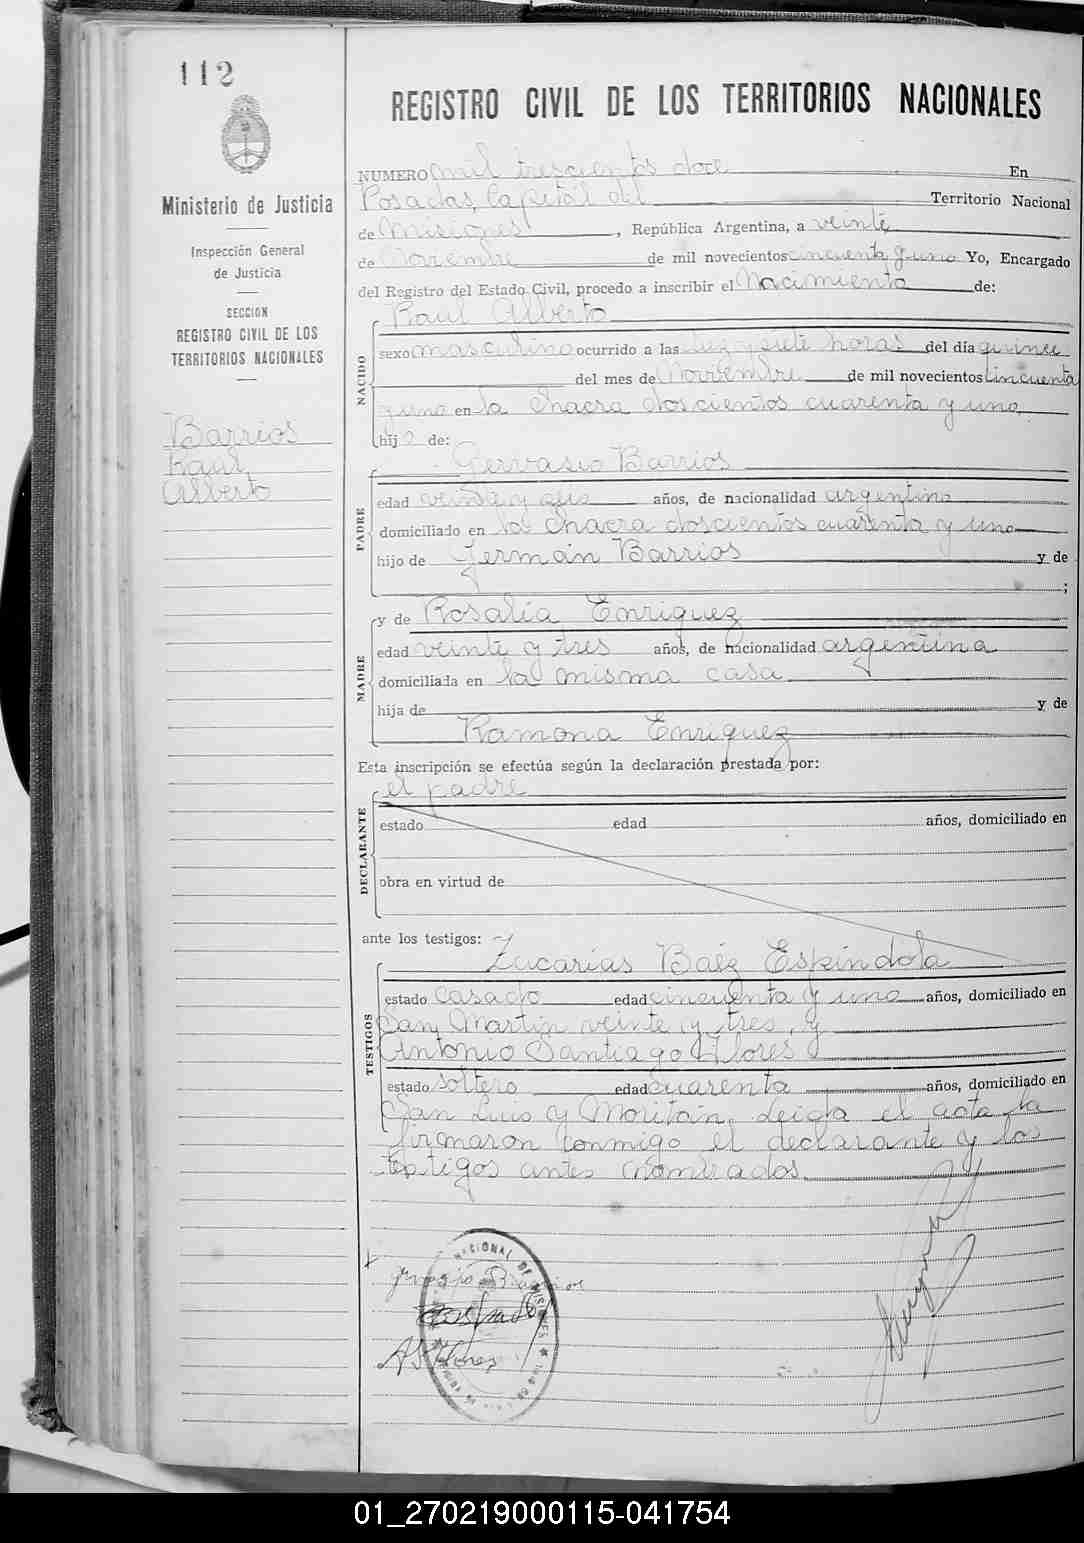 112
REGISTRO CIVIL DE LOS TERRITORIOS NACIONALES
Ministerio de Justicia
Inspección General
de Justicia
SECCION
REGISTRO CIVIL DE LOS
TERRITORIOS NACIONALES
Barrios
Raul
Alberto
NUMERO mil trescientos doce En
Posadas, Capital del Territorio Nacional
de Misiones, República Argentina, a veinte
de Noviembre de mil novecientos cincuenta y uno Yo, Encargado
del Registro del Estado Civil, procedo a inscribir el Nacimiento de:
NACIDO
Raul Alberto
sexo masculino ocurrido a las diez y siete horas del día quince
del mes de Noviembre de mil novecientos cincuenta
y uno en la chacra doscientos cuarenta y uno
hijo de:
PADRE
Gervasio Barrios
edad veinte y años, de nacionalidad argentino
domiciliado en la chacra doscientos cuarenta y uno
hijo de Germán Barrios y de
;
MADRE
y de Rosalia Enriquez
edad veinte y tres años, de nacionalidad argentina
domiciliada en la misma casa
hija de y de
Ramona Enriquez
Esta inscripción se efectúa según la declaración prestada por:
DECLARANTE
el padre
estado edad años, domiciliado en
obra en virtud de
ante los testigos:
TESTIGOS
Zacarias Baéz Espindola
estado casado edad cincuenta y uno años, domiciliado en
San Martin veinte y tres, y
Antonio Santiago Flores
estado soltero edad cuarenta años, domiciliado en
San Luis y Moritán, Leida el acta la
firmaron conmigo el declarante y los
testigos antes nombrados
NACIONAL DE MISIONES
A S Flores
01_270219000115-041754